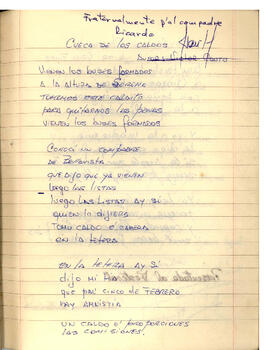 Fraternalmente p'al compadre
Ricardo
CUECA DE LOS CALDOS
VIENEN LOS BUSES FORMADOS
A LA ALTURA DE
TOMEMOS ESTE CALDITO
PARA QUITARNOS LAS PENAS
VIENEN LOS BUSES FORMADOS
CONOCÍ UN COMPADRE
DE
QUE DIJO QUE YA VIENEN
LUEGO LAS LISTAS
LUEGO LAS LISTAS AY SÍ
QUIEN LO DIJERA
TOMO CALDO E CABEZA
EN LA TETERA
EN LA TETERA AY SÍ
DIJO MI
QUE PAL' CINCO DE FEBRERO
HAY AMNISTIA
UN CALDO O' PROPORCIONES
LAS COMISIONES.